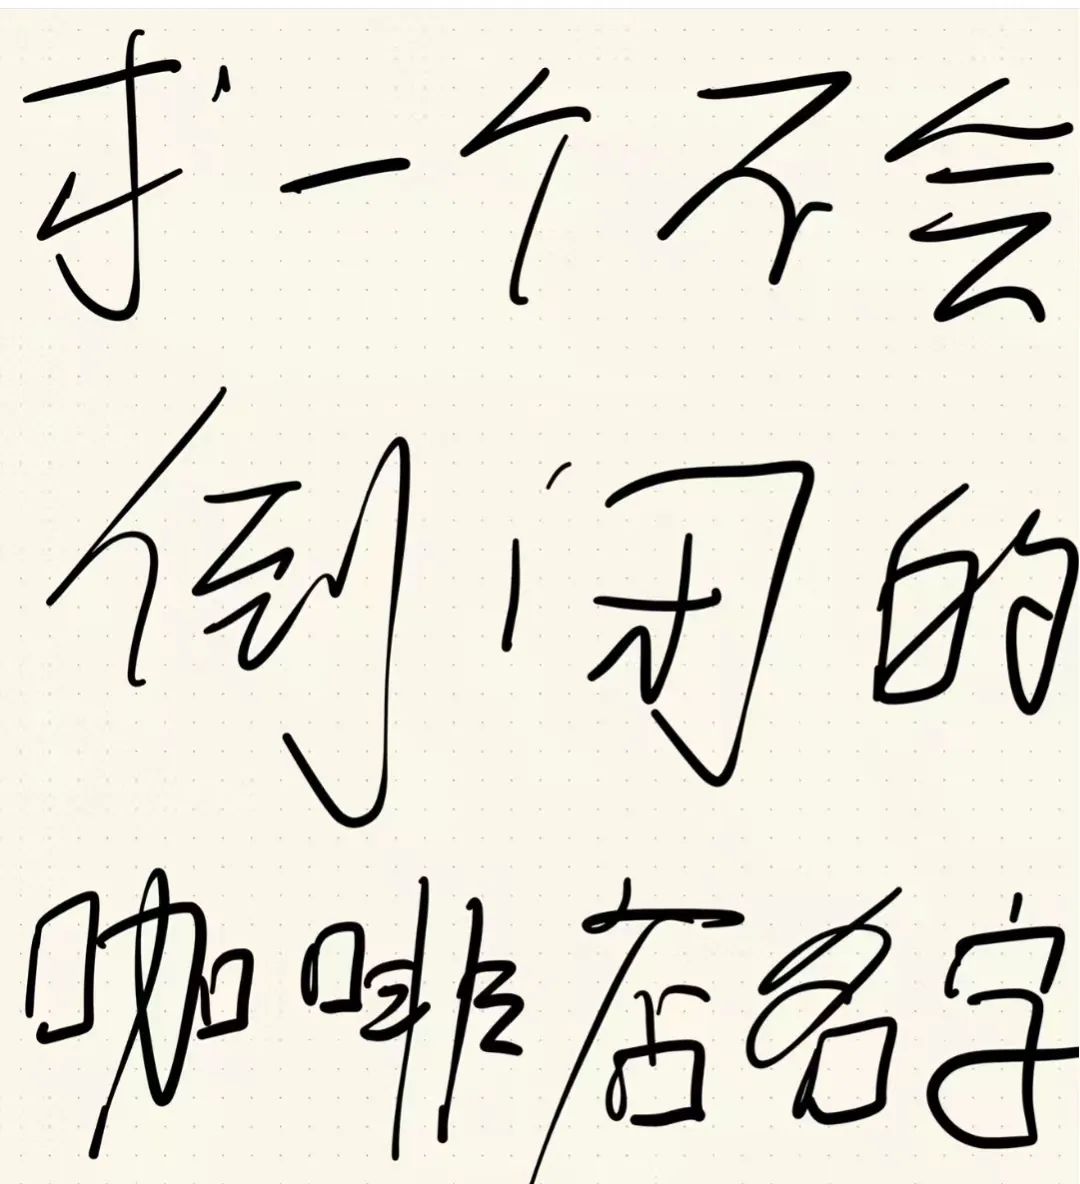 求一个不会
倒闭的
咖啡店名字